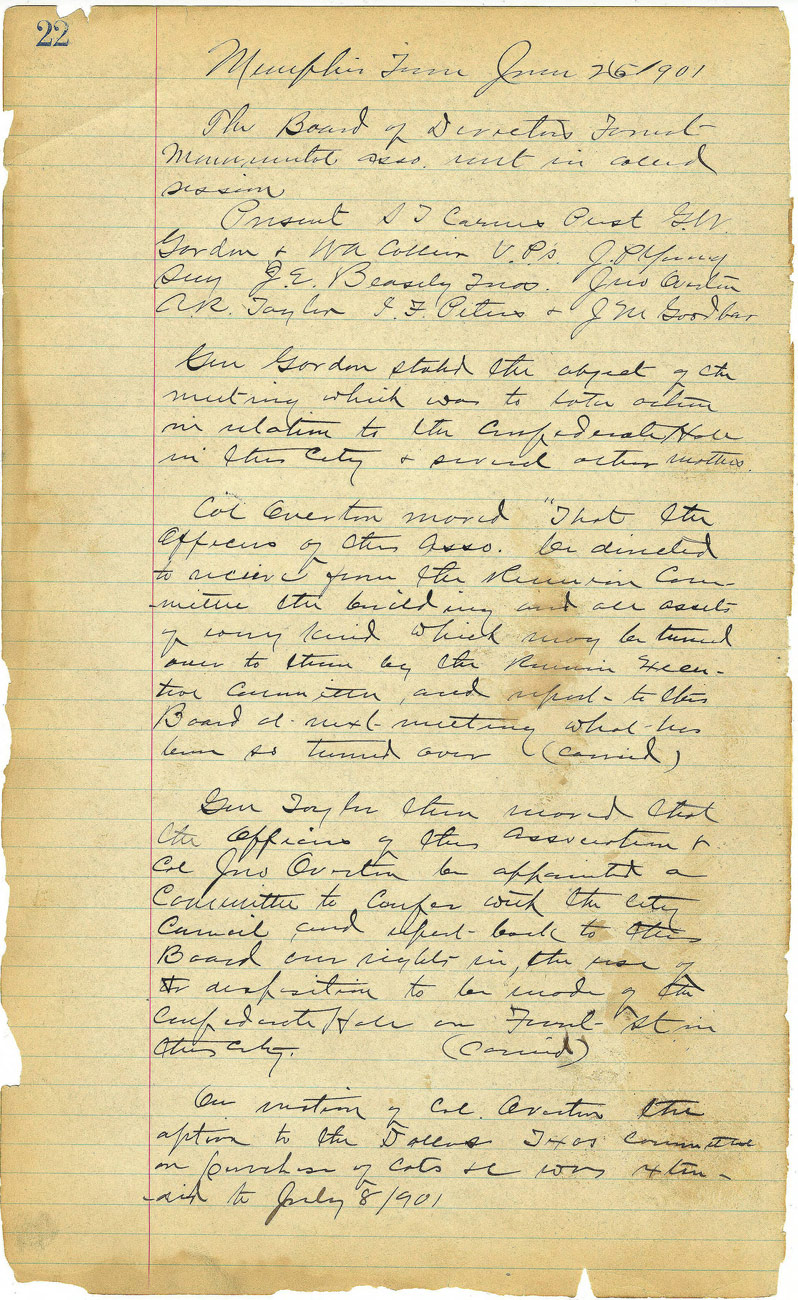 22
Memphis Tenn June 26/1901
The Board of Directors Forrest
Monumental Asso. met in called
session
Present S T Carnes Prest G.W.
Gordon & WA Collier V.P's. J.P. Young
Secy J.E. Beasely Treas. Jno Overton
A.R. Taylor I. F. Peters & J M Goodbar
Gen Gordon stated the object of the
meeting which was to take action
in relation to the Confederate Hall
in this City & several other matters.
Col Overton moved "That the
Officers of this Asso. be directed
to recieve from the Reunion Com-
mittee the building and all assets
of every kind which may be turned
over to them by the Reunion Execu-
tive Committee, and report to this
Board at next meeting what has
been so turned over (Carried)
Gen Taylor then moved that
the Officers of this Association &
Col Jno Overton be appointed a
Committee to Confer with the City
Council and report back to this
Board our rights in, the use of
& disposition to be made of the
Confederate Hall on Front St in
this City. (Carried)
On motion of Col. Overton the
option to the Dallas Texas Committee
on purchase of Cots &c was exten-
ded to July 8/1901